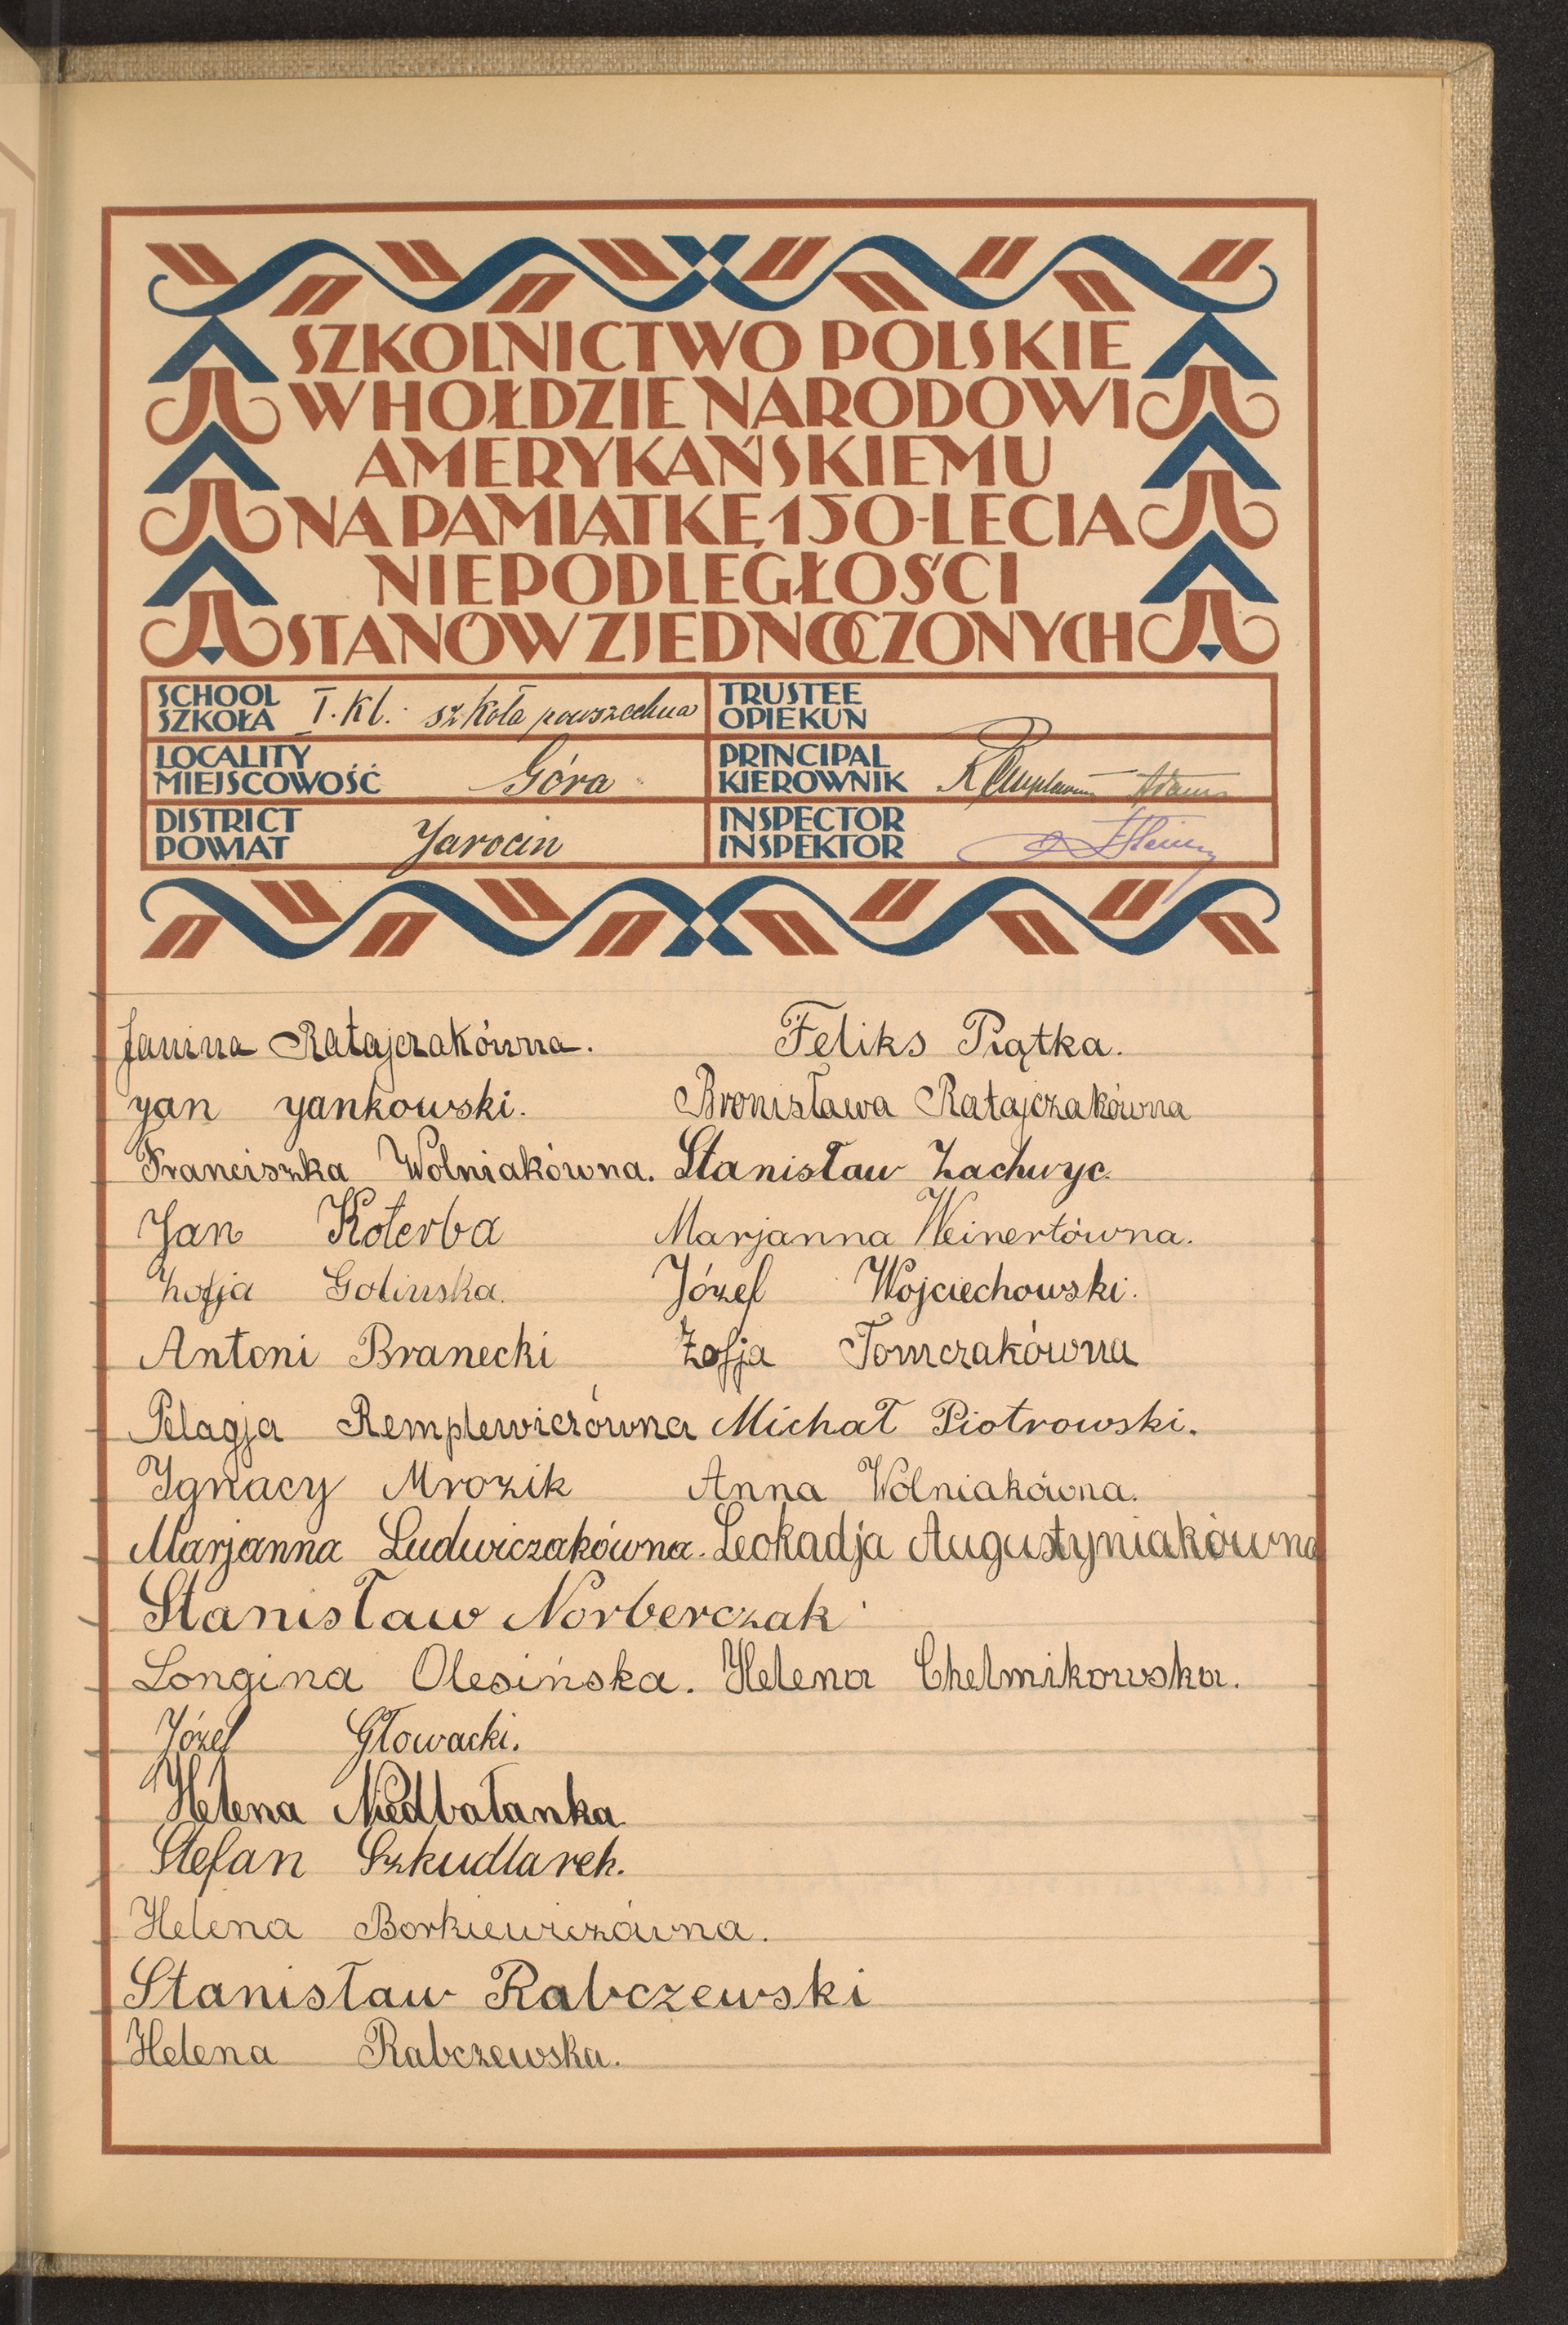 SZKOLNICTWO POLSKIE
W HOŁDZIE NARODOWI
AMERYKAŃSKIEMU
NA PAMIĄTKĘ 150-LECIA
NIEPODLEGŁOŚCI
STANÓW ZJEDNOCZONYCH
SCHOOL
SZKOŁA I. Kl. szkoła powszechna
TRUSTEE
OPIEKUN
LOCALITY
MIEJSCOWOŚĆ Góra
PRINCIPAL
KIEROWNIK
DISTRICT
POWIAT Jarocin
INSPECTOR
INSPEKTOR
Janina Ratajczakówna. Feliks Piątka.
Jan Jankowski. Bronisława Ratajczakówna
Franciszka Wolniakówna. Stanisław Zachwyc.
Jan Koterba Marjanna Weinertówna.
Zofja Golinska. Józef Wojciechowski.
Antoni Branecki Zofja Tomczakówna
Pelagja Remplewiczówna Michał Piotrowski.
Ignacy Mrozik Anna Wolniakówna.
Marjanna Ludwiczakówna. Leokadja Augustyniakówna
Stanisław Norberczak
Longina Olesińska. Helena Chelmikowska.
Józef Głowacki.
Helena Niedbałanka
Stefan Szkudlarek.
Helena Borkiewiczówna.
Stanisław Rabczewski
Helena Rabczewska.